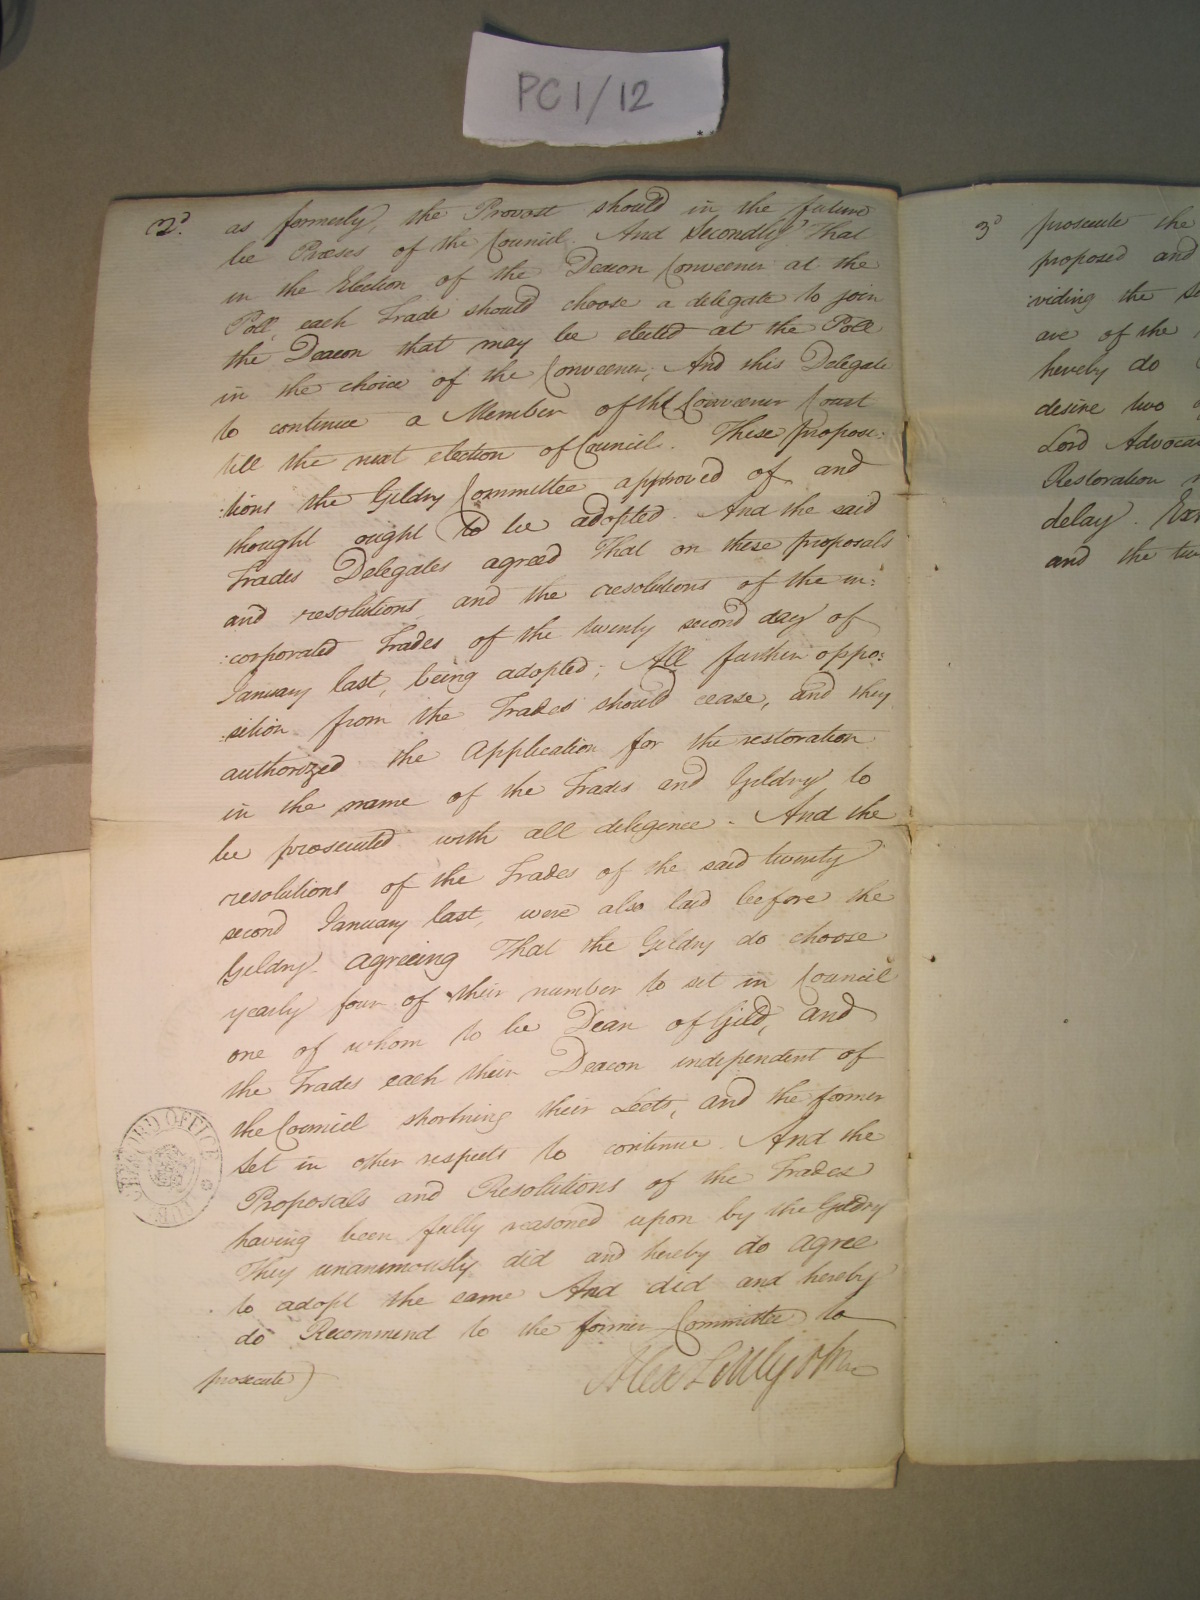 PC 1/12
2d. as formerly, the Provost should in the future
be Præses of the Council. And Secondly That
in the Election of the Deacon Conveener at the
Poll, each Trade should choose a delegate to join
the Deacon that may be elected at the Poll
in the choice of the Conveener, And this Delegate
to continue a Member of the Conveener Court
till the next election of Council. These propose:
:tions the Gildry Committee approved of and
thought ought to be adopted. And the said
Trades Delegates agreed That on these proposals
and resolutions and the resolutions of the in:
:corporated Trades of the twenty second day of
January last, being adopted; All further oppo:
:sition from the Trades should cease, and they
authorized the Application for the restoration
in the name of the Trades and Gildry to
be prosecuted with all deligence. And the
resolutions of the Trades of the said twenty
second January last, were also laid before the
Gildry agreeing That the Gildry do choose
yearly four of their number to sit in Council
one of whom to be Dean of Gild, and
the Trades each their Deacon independent of
the Council shortning their Leets, and the former
Set in other respects to continue. And the
Proposals and Resolutions of the Trades
having been fully reasoned upon by the Gildry
They unanimously did and hereby do agree
to adopt the same And did and hereby
do Recommend to the former Committee to
prosecute)
RECORD OFFICE
3d prosecute the
proposed and
viding the
are of the
hereby do
desire two
Lord Advoca
Restoration
delay.
and the